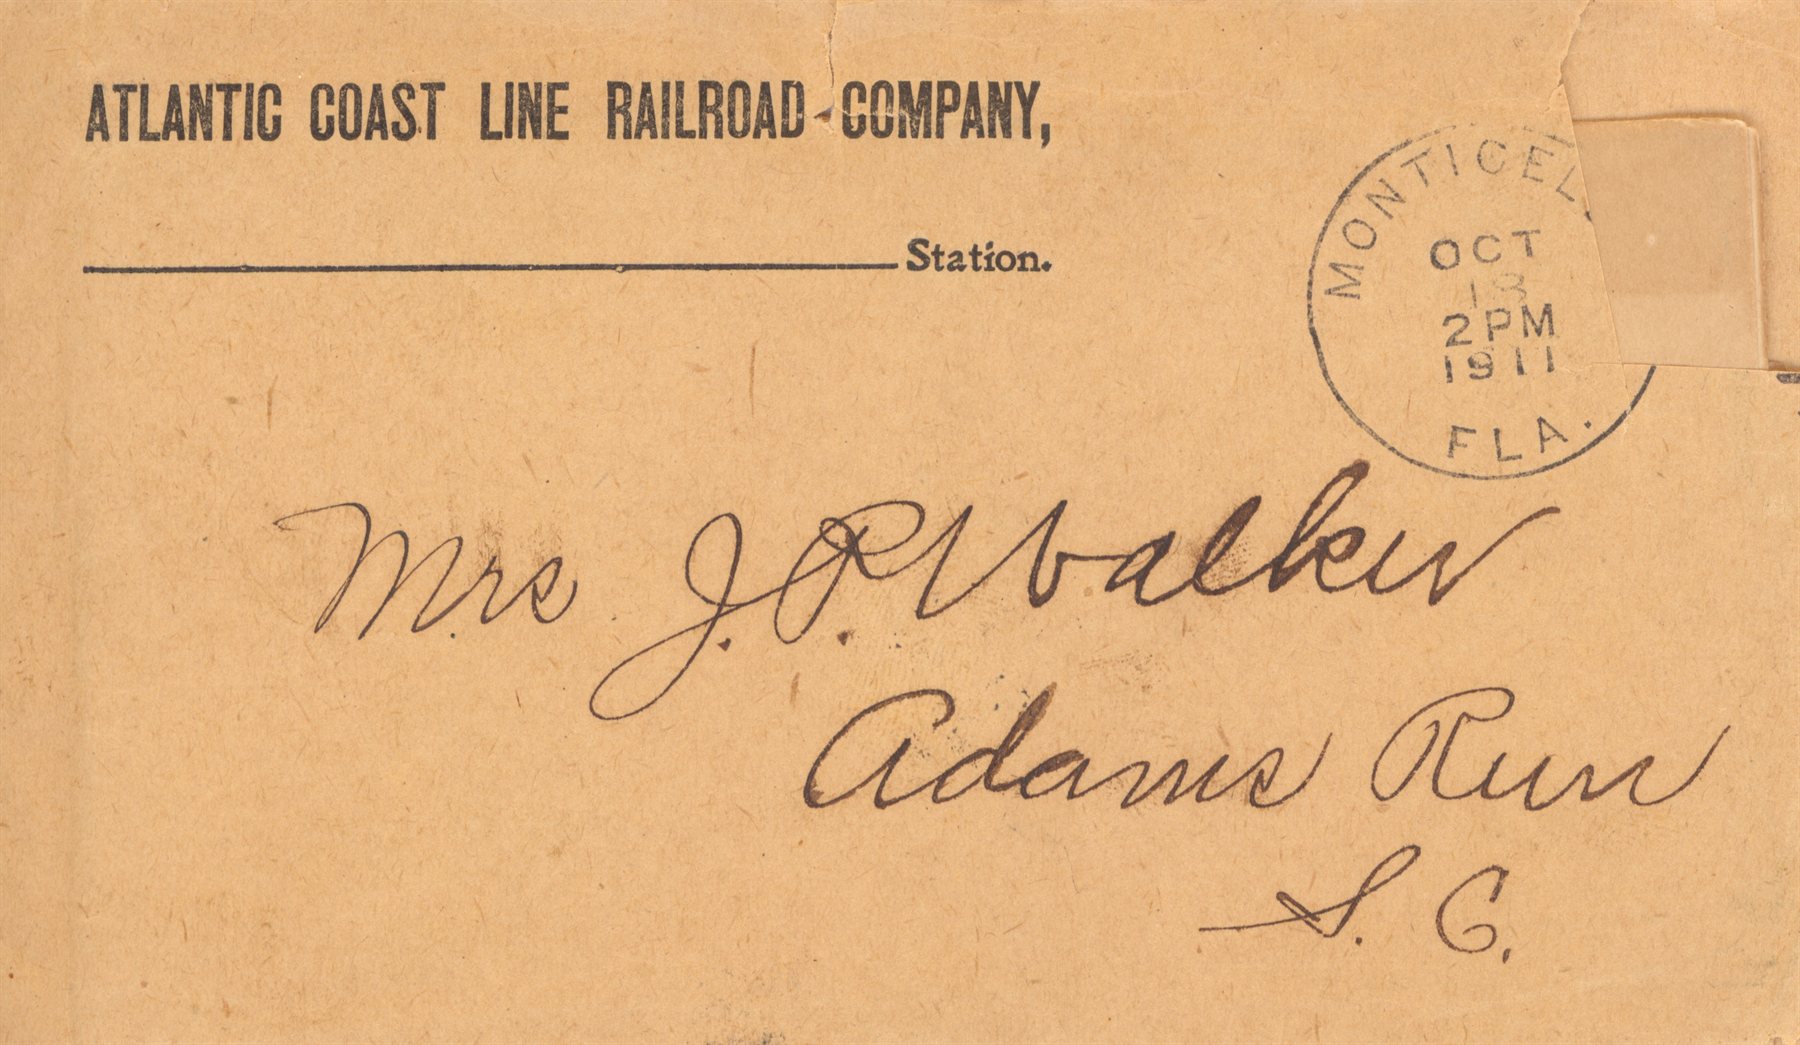 ATLANTIC COAST LINE RAILROAD COMPANY,
Station.
MONTICEL
OCT
13
2 PM
1911
FLA.
Mrs J. P. Walker
Adams Run
S. C.